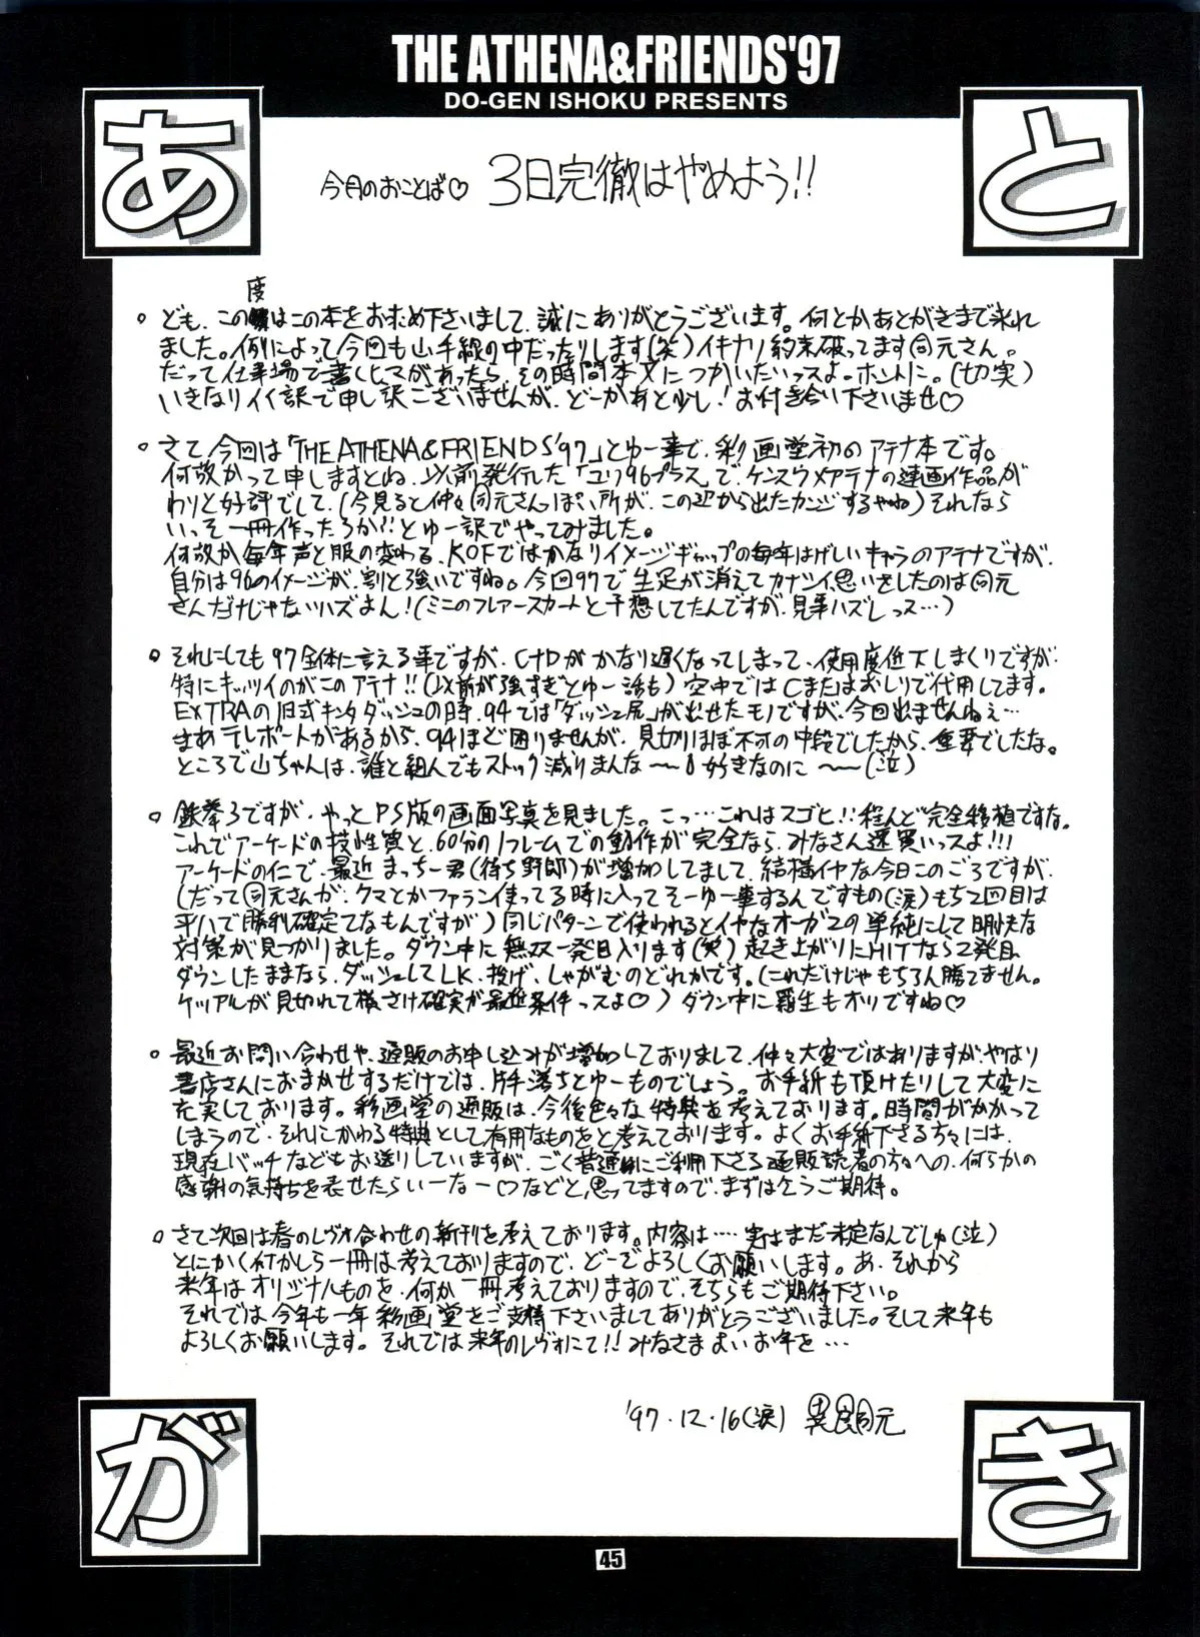 THE ATHENA&FRIENDS'97
DO-GEN ISHOKU PRESENTS
あ
と
今月のおことば♡ 3日完徹はやめよう!!
度
。ども、この はこの本をお求め下さいまして、誠にありがとうございます。何とかあとがきまで来れ
ました。例によって今回も山手線の中だったりします(笑)イキナリ約束破ってます同元さん。
だって仕事場で書くヒマがあったら、その時間本文につかいたいっスよ。ホントに。(切実)
いきなりイイ訳で申し訳ございませんが、どーかあと少し!お付き合い下さいませ♡
。さて、今回は「THE ATHENA&FRIENDS'97」とゆー事で、彩画堂初のアテナ本です。
何故かって申しますとね、以前発行した「ユリ96プラス」で、ケンスウ×アテナの連画作品が
わりと好評でして、(今見ると仲々同元さんっぽい所が、この辺から出たカンジするやね)それなら
いっそ一冊作ったろか!!とゆー訳でやってみました。
何故か毎年声と服の変わる、KOFではかなりイメージギャップの毎年はげしいキャラのアテナですが、
自分は96のイメージが、割と強いですね。今回97で生足が消えてカナシイ思いをしたのは同元
さんだけじゃないハズよん!(ミニのフレアースカートと予想してたんですが、見事ハズレっス…)
。それにしても97全体に言える事ですが、C+Dがかなり遅くなってしまって、使用度低下しまくりですが、
特にキッツイのがこのアテナ!!(以前が強すぎとゆー話も)空中ではCまたはおしりで代用してます。
EXTRAの旧式キンタダッシュの時、94では「ダッシュ尻」が出せたモノですが、今回出ませんねぇ…
まあテレポートがあるから、94ほど困りませんが、見切りほぼ不可の中段でしたから、重要でしたな。
ところで山ちゃんは、誰と組んでもストック減りまんな〜〜。好きなのに〜〜(泣)
。鉄拳3ですが、やっとPS版の画面写真を見ました。こっ…これはスゴヒ!!殆んど完全移植ですな。
これでアーケードの技性質と、60分の1フレームでの動作が完全なら、みなさん速買いっスよ!!!
アーケードの仁で、最近まっちー君(待ち野郎)が増加してまして、結構イヤな今日このごろですが、
(だって同元さんが、クマとかファラン使ってる時に入ってそーゆー事するんですもの(涙)もち2回目は
平八で勝利確定てなもんですが)同じパターンで使われるとイヤなオーガ2の単純にして明快な
対策が見つかりました。ダウン中に無双一発目入ります(笑)起き上がりにHITなら2発目
ダウンしたままなら、ダッシュしてLK、投げ、しゃがむのどれかです。(これだけじゃもちろん勝てません。
ケツアルが見切れて横さけ確実が最低条件っスよ♡)ダウン中に羅生もオツですね♡
。最近お問い合わせや、通販のお申し込みが増加しておりまして、仲々大変ではありますが、やはり
書店さんにおまかせするだけでは、片手落ちとゆーものでしょう。お手紙も頂けたりして大変に
充実しております。彩画堂の通販は、今後色々な特典を考えております。時間がかかって
しまうので、それにかわる特典として有用なものをと考えております。よくお手紙下さる方々には、
現在バッチなどもお送りしていますが、ごく普通にご利用下さる通販読者の方々への、何らかの
感謝の気持ちを表せたらいーなー♡などと、思ってますので、まずは乞うご期待。
。さて次回は春のレヴォ合わせの新刊を考えております。内容は…実はまだ未定なんでしゅ(泣)
とにかく何かしら一冊は考えておりますので、どーぞよろしくお願いします。あ、それから
来年はオリジナルものを、何か一冊考えておりますので、そちらもご期待下さい。
それでは今年も一年彩画堂をご支持下さいましてありがとうございました。そして来年も
よろしくお願いします。それでは来年のレヴォにて!!みなさまよいお年を…
'97.12.16(涙) 異食同元
が
き
45